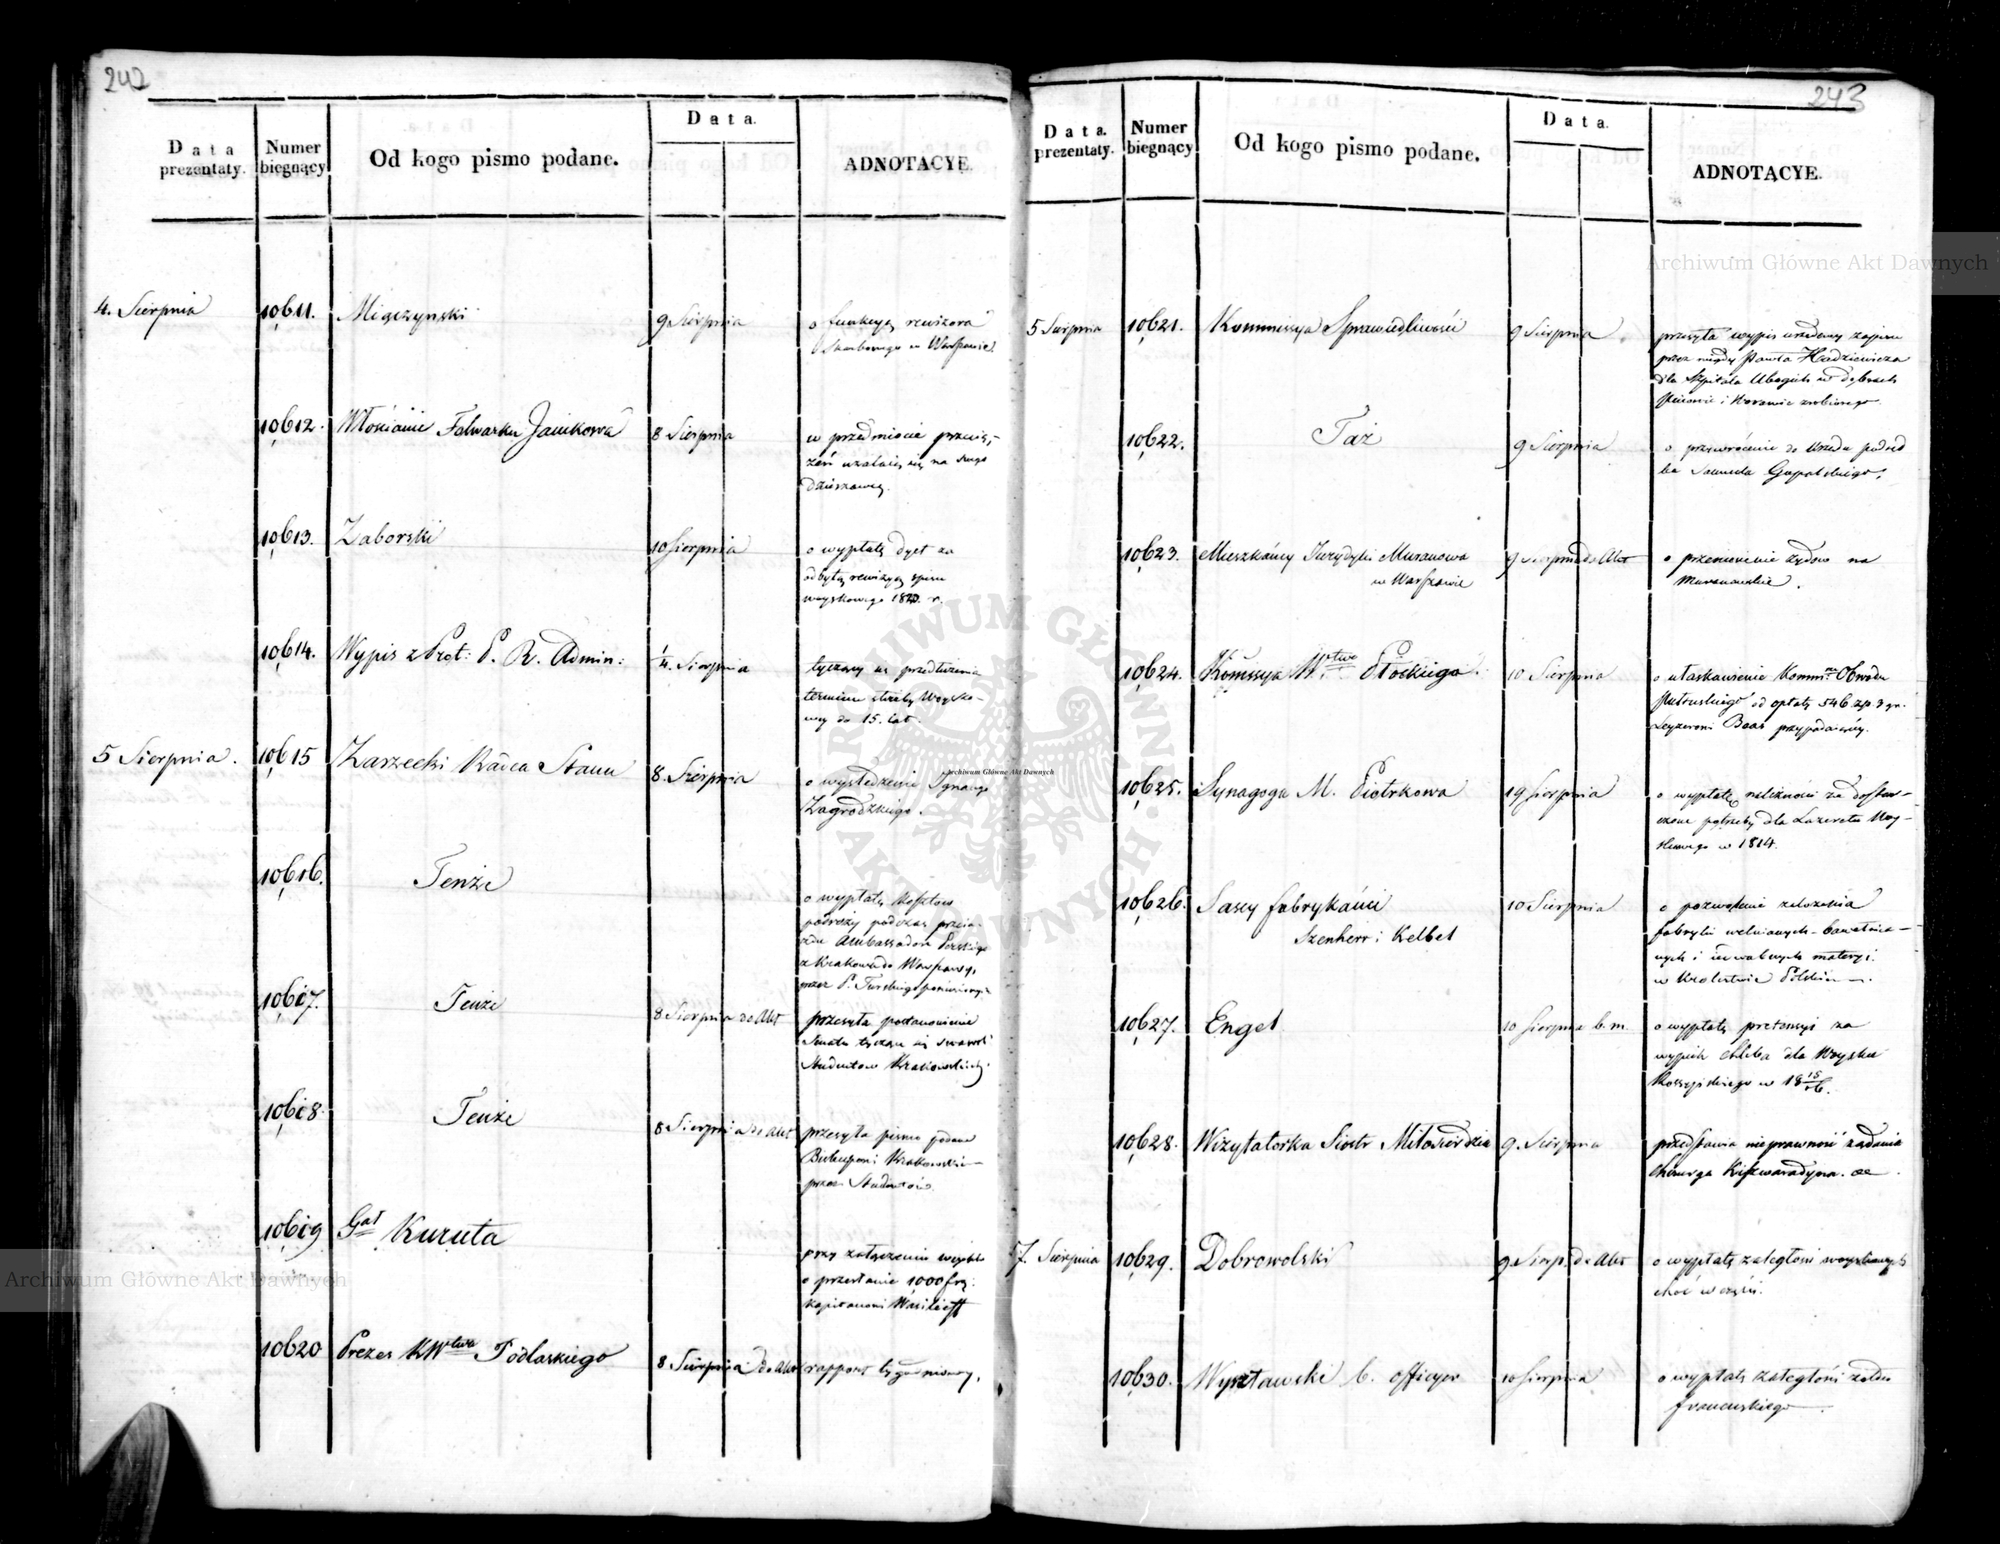 242
Data prezentaty.
Numer biegnący
Od kogo pismo podane.
Data.
ADNOTACYE.
4. Sierpnia
10611.
Miączynski
9 Sierpnia
o funkcyą rewizora
Skarbowego w Warszawie.
10612.
Włościanie Folwarku Janikowa
8 Sierpnia
w przedmiocie
na swego
dzierzawcę.
10613.
Zaborski
10 Sierpnia
o wypłatę dyet za
odbytą rewizyą spisu
woyskowego 1820. r.
10614.
Wypis z Prot: P. R. Admin:
4. Sierpnia
tyczący się przedłużenia
terminu służby Woysko-
wey do 15. lat.
5 Sierpnia.
10615
Zarzecki Radca Stanu
8. Sierpnia
o wyśledzenie Ignacego
Zagrodzkiego.
10616.
Tenże
o wypłatę kosztow
podroży podczas przeia-
zdu Ambassadora Perskiego
z Krakowa do Warszawy,
przez P. Turskiego poniesionych
10617.
Tenże
8 Sierpnia do Akt
przesyła postanowienie
Senatu tyczące się swawoli
Studentow Krakowskich.
10618.
Tenże
8 Sierpnia do Akt
przesyła pismo podane
Biskupowi Krakowski-
przez Studentów.
10619
Gał Kuruta
przy załączeniu
o przesłanie 1000 frą:
kapitanowi Wasilieff
10620
Prezes KWtwa Podlaskiego
8 Sierpnia do Akt
rapport tygodniowy.
243
Data. prezentaty.
Numer biegnący
Od kogo pismo podane.
Data.
ADNOTACYE.
5 Sierpnia
10621.
Kommissya Sprawiedliwości
9 Sierpnia
przesyła wypis urzędowy zapisu
przez niegdy Pawła Hadziewicza
dla Szpitala Ubogich w dobrach
i zrobionego.
10622.
Taż
9 Sierpnia
o przywrócenie do Urzędu podsęd
ka Samuela
10623.
Mieszkańcy Jurydyki Muranowa
w Warszawie
9 Sierpnia do Akt
o przeniesienie żydow na
Muranowskie.
10624.
Kommssya Wtwa Płockiego.
10 Sierpnia
o ułaskawienie Komm. Obwodu
Pułtuskiego od opłaty 546. zp. 3 gr.
Leyzerowi Boas przypadaiący.
10625.
Synagoga M. Piotrkowa
19 Sierpnia
o wypłatę należności za dostaw-
czone potrzeby dla Lazaretu Woy-
skowego w 1814.
10626.
Sascy fabrykańci
Szenherr i Kelbel
10 Sierpnia
o pozwolenie założenia
fabryki wełnianych-bawełnia-
nych i iedwabnych materyi
w Krolestwie Polskim.
10627.
Engel
10 Sierpnia b. m.
o wypłatę pretensyi za
wypiek chleba dla Woyska
Rossyiskiego w 1815/16.
10628.
Wizytatorka Siostr Miłosierdzia
9. Sierpnia
przedstawia nieprawność żądania
Chirurga Kiszwaradyna. &c
7. Sierpnia
10629.
Dobrowolski
9 Sierp. do Akt
o wypłatę zaległości woyskowych
choć w części.
10630.
Wysztawski b. officyer
10 Sierpnia
o wypłatę zaległości żołdu
francuskiego.
Archiwum Główne Akt Dawnych
Archiwum Główne Akt Dawnych
Archiwum Główne Akt Dawnych
ARCHIWUM GŁÓWNE AKT DAWNYCH